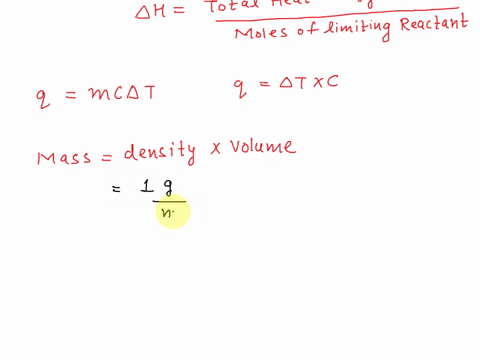 ΔH = Total Heat
Moles of limiting Reactant
q = mCΔT q = ΔT×C
Mass = density × Volume
= 1 g